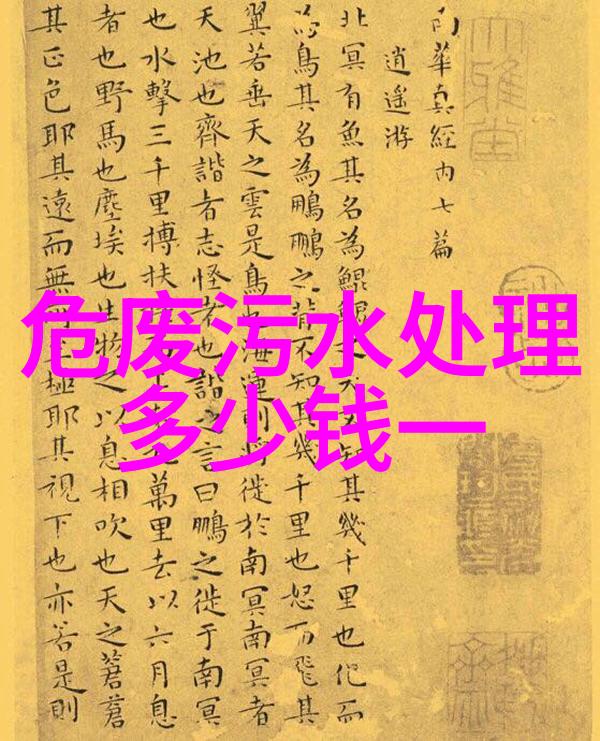 危废污水处理
多少钱一
南華真經内七篇
逍遥游
北冥有魚其名為鯤鯤之大不知其幾千里也化而
為鳥其名為鵬鵬之背不知其幾千里也怒而飛其
翼若垂天之雲是鳥也海運則將徙於南冥南冥者
天池也齊諧者志怪者也諧之言曰鵬之徙于南冥
也水擊三千里搏扶九萬里去以六月息
者也野馬也塵埃也生物之以息相吹也天之蒼蒼
其正色耶其遠而無極耶其視下也亦若是則